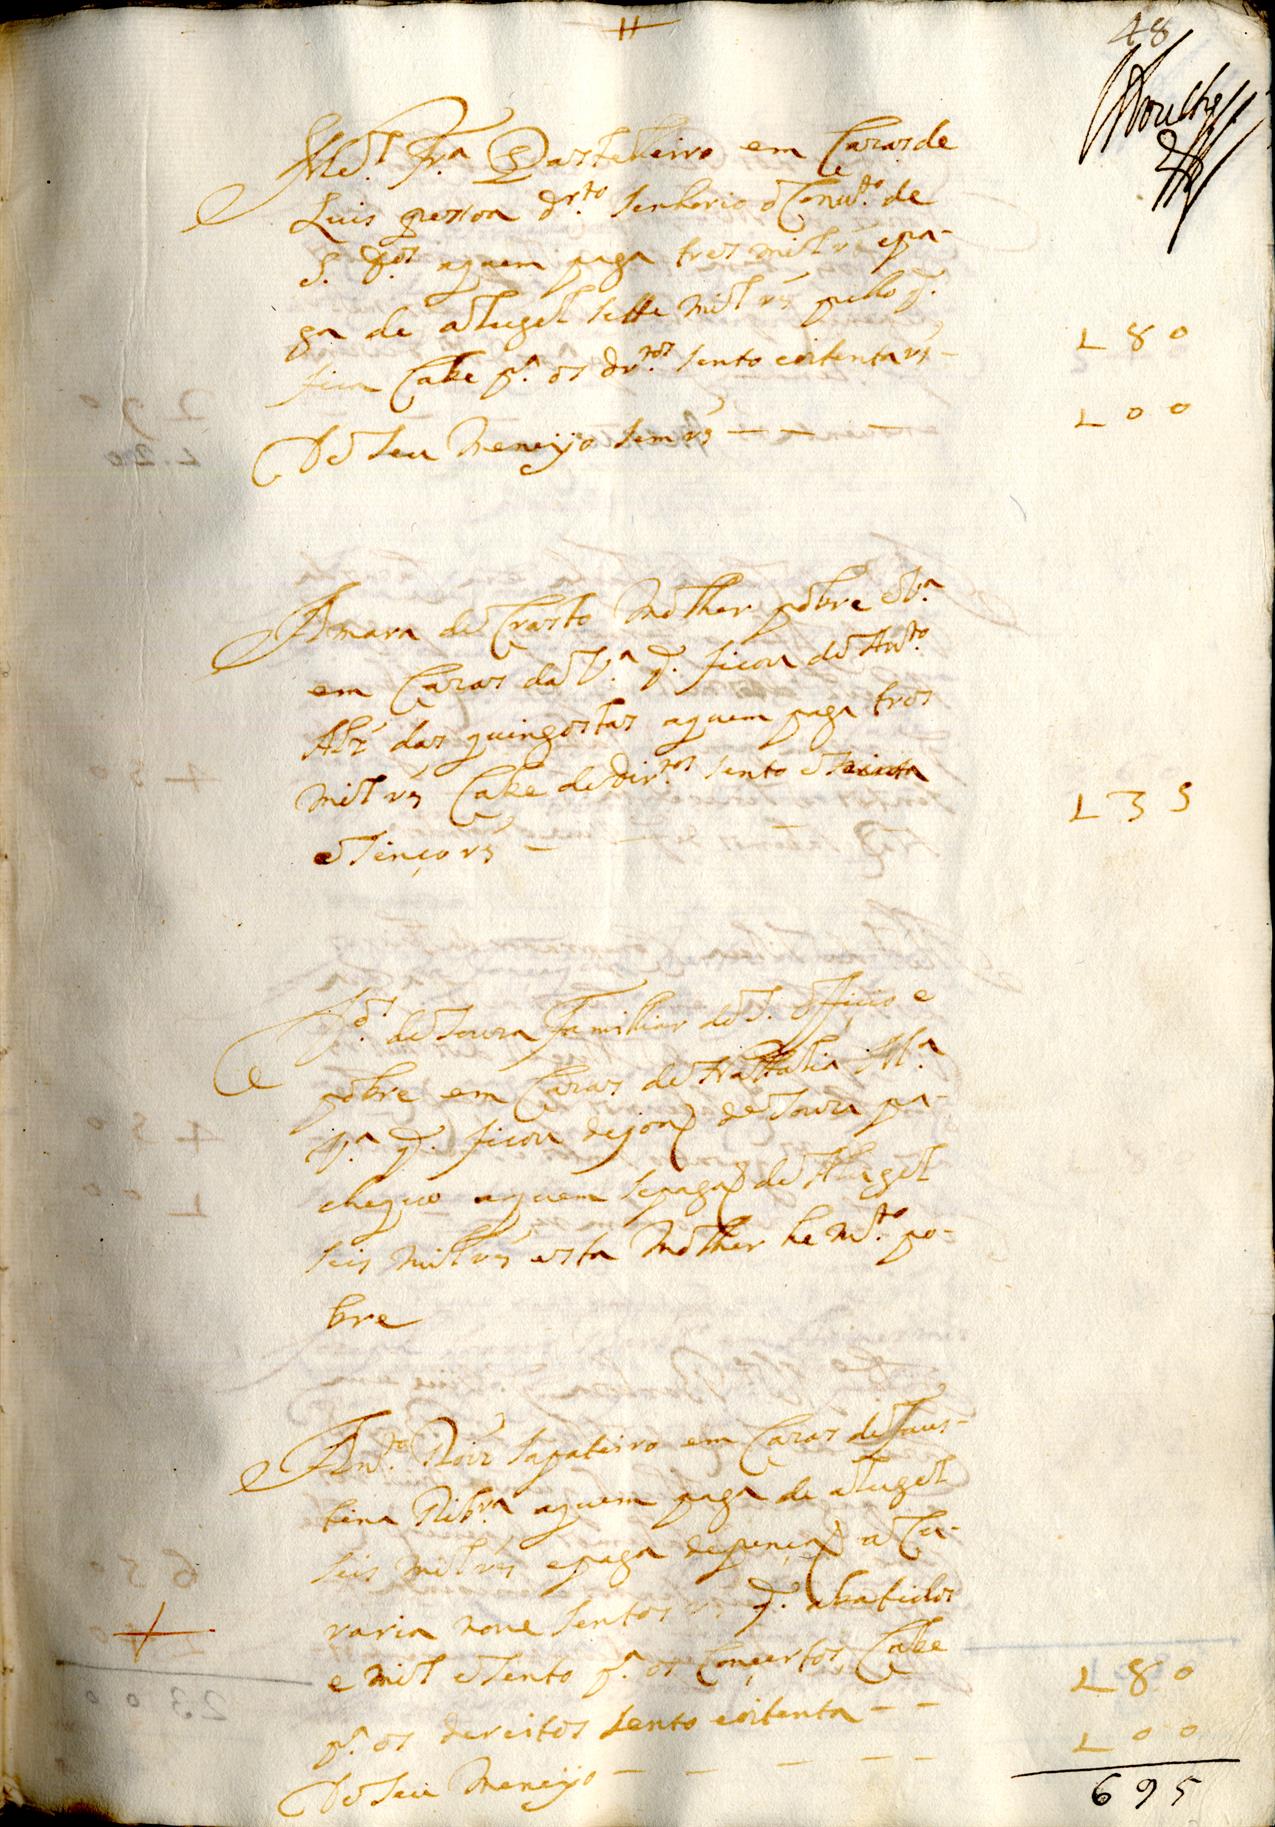 48
M.el Fr.a Pasteleiro em Cazas de
Luis pessoa dr.to senhorio o Conv.to de
S. D.os aquem paga tres mil rs e pa-
ga de aluguel sette mil rs pello q.
fica Cabe p.a os dr.tos sento eoitenta rs — 180
Do seu Meneyo sem rs — — — 100
Amara de Crasto Molher pobre V.a
em Cazas da V.a q. ficou de Ant.o
Alz das quingostas aquem paga tres
mil rs Cabe de dir.tos sento e trinta
e sinco rs — 135
Jo. de Souza familliar do S. officio e
pobre em Cazas de Nattalia
V.a q. ficou de joaõ de Souza pa-
chequo aquem se paga de Aluguel
seis mil rs esta Molher he m.to po-
bre
Ant.o Roiz sapateiro em Cazas de Faus-
tina Ribr.a aquem paga de aluguel
seis mil rs epaga de pençaõ a Cu-
raria nove sentos rs q. abatidos
e mil e sento p.a os Conçertos, Cabe
p.a os dereitos sento eoitenta — — 180
Do seu Meneyo — — — — 100
695